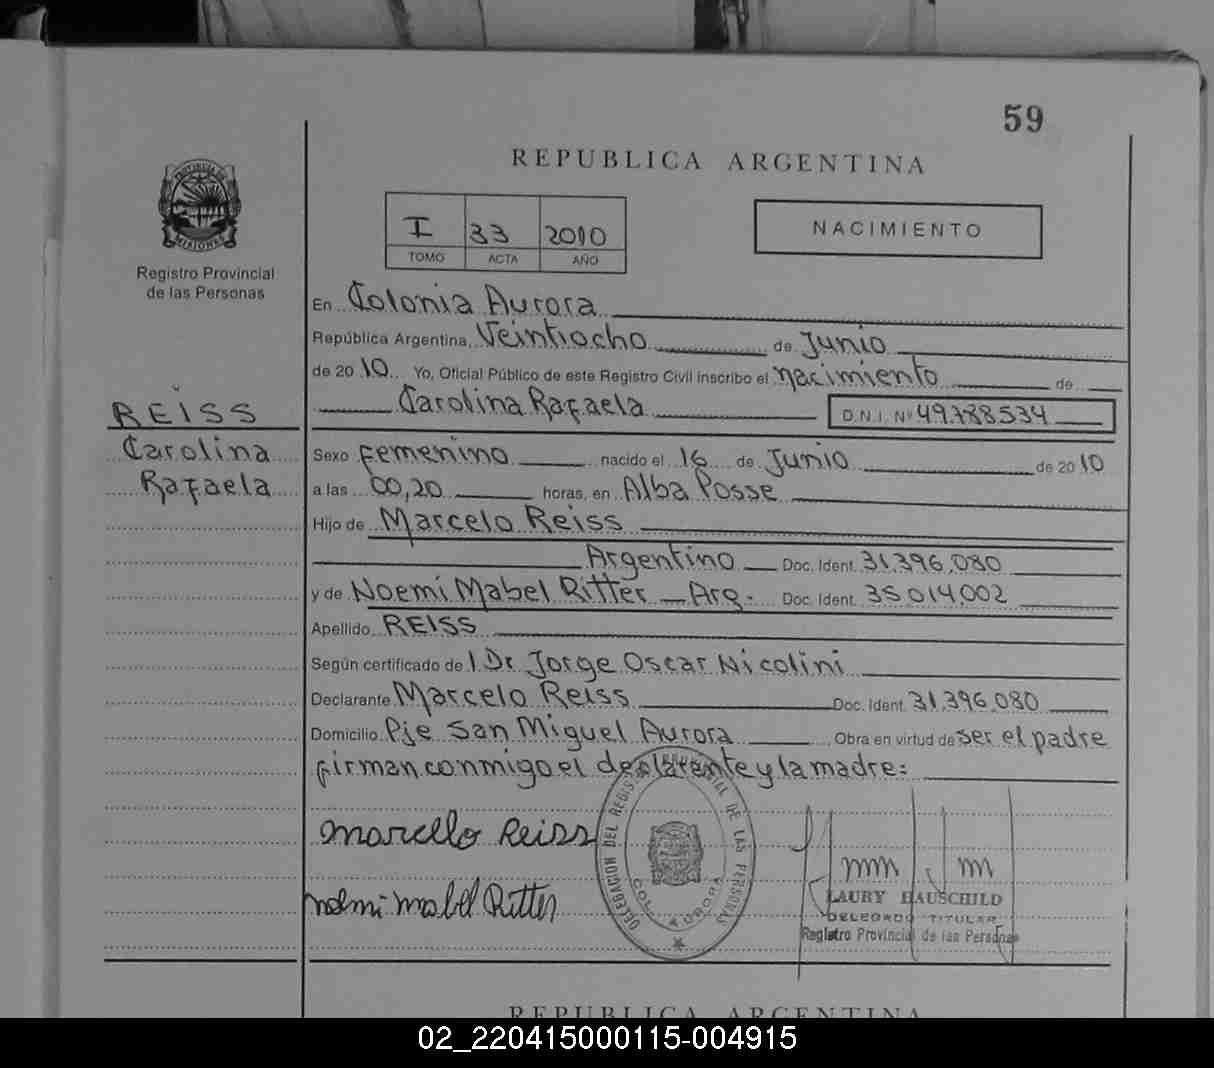 59
REPUBLICA ARGENTINA
PROVINCIA DE MISIONES
Registro Provincial
de las Personas
I 33 2010
TOMO ACTA AÑO
NACIMIENTO
En Colonia Aurora
República Argentina, Veintiocho de Junio
de 2010. Yo, Oficial Público de este Registro Civil inscribo el nacimiento de
Carolina Rafaela D.N.I. Nº 49.788.534
REISS
Carolina
Rafaela
Sexo femenino nacido el 16 de Junio de 2010
a las 00,20 horas, en Alba Posse
Hijo de Marcelo Reiss
Argentino Doc. Ident. 31.396.080
y de Noemí Mabel Ritter Arg. Doc. Ident. 35.014.002
Apellido REISS
Según certificado de l Dr Jorge Oscar Nicolini
Declarante Marcelo Reiss Doc. Ident. 31.396.080
Domicilio Pje San Miguel Aurora Obra en virtud de ser el padre
firman conmigo el declarante y la madre:
marcello Reiss
noemi mabel Ritter
DELEGACION DEL REGISTRO PROVINCIAL DE LAS PERSONAS
COL. AURORA
LAURY HAUSCHILD
DELEGADO TITULAR
Registro Provincial de las Personas
REPUBLICA ARGENTINA
02_220415000115-004915